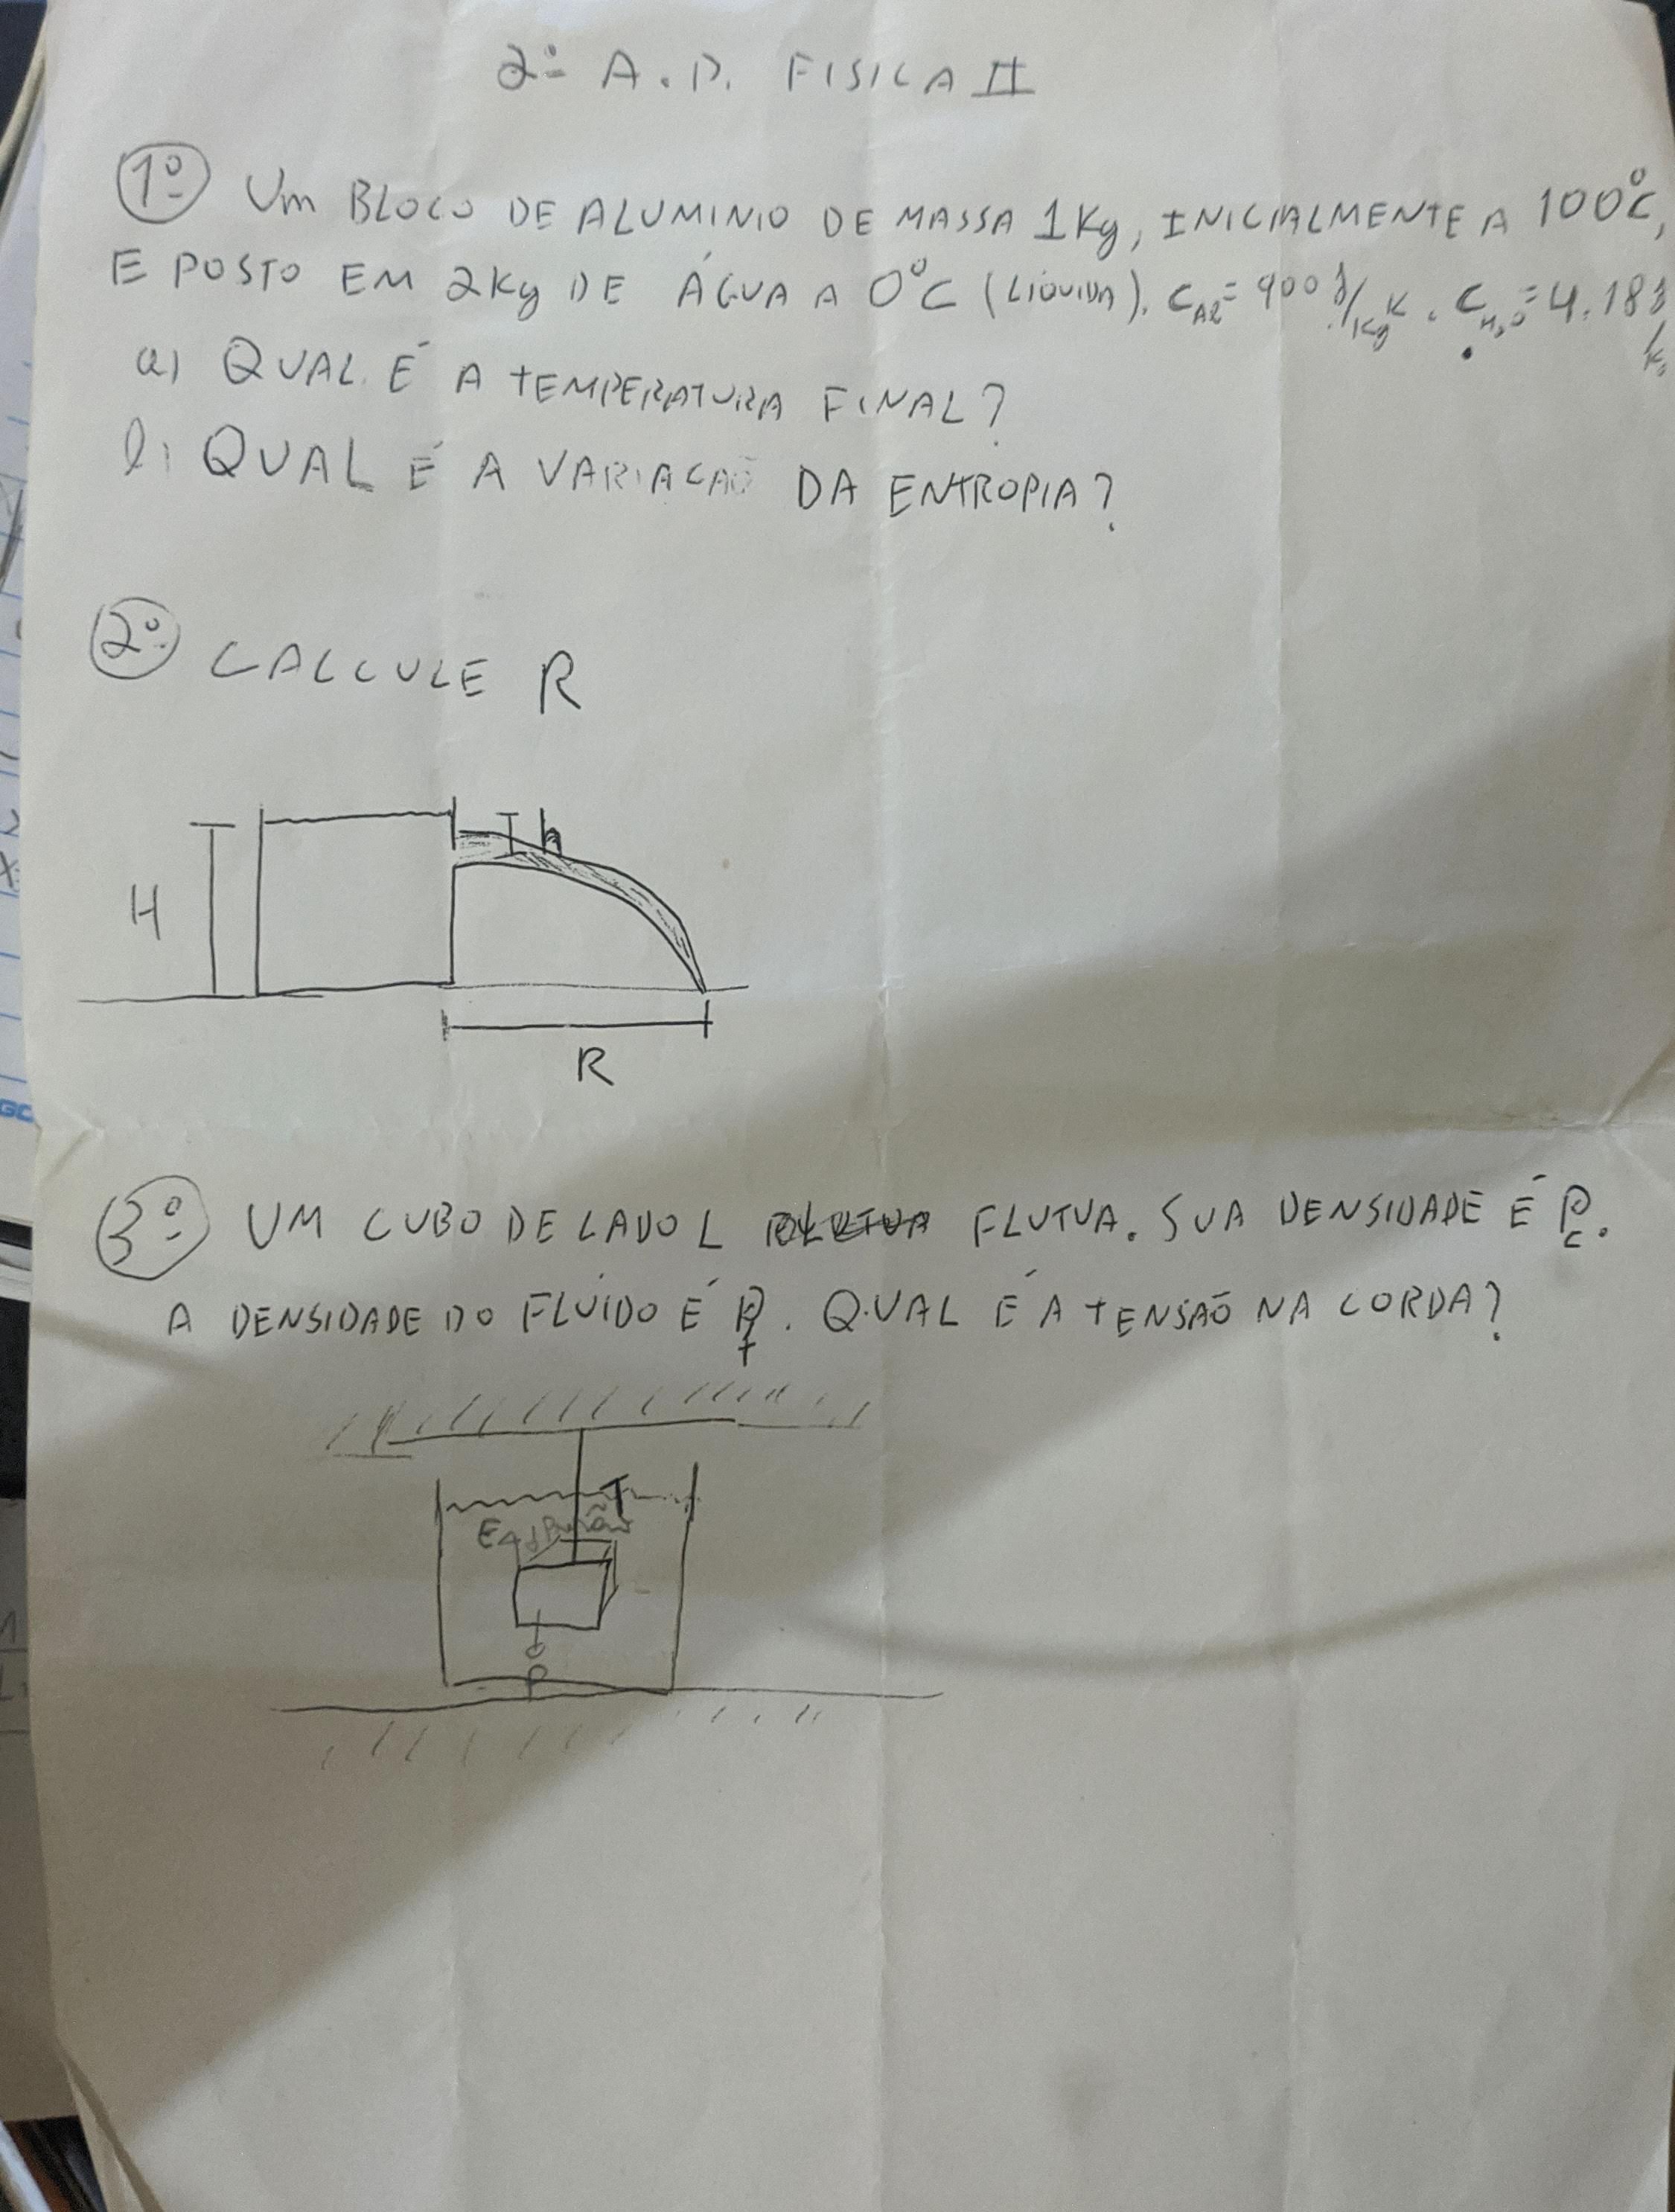 2º A.P. FISICA II
1º Um BLOCO DE ALUMINIO DE MASSA 1Kg, INICIALMENTE A 100°C,
E POSTO EM 2Kg DE ÁGUA A 0°C (LÍQUIDA). CAl = 900 J/KgK. CH2O = 4.18J/K
a) QUAL É A TEMPERATURA FINAL?
b) QUAL É A VARIACAÕ DA ENTROPIA?
2º CALCULE R
H
h
R
3º UM CUBO DE LADO L FLUTUA. SUA DENSIDADE É ρc.
A DENSIDADE DO FLÚIDO É ρf. QUAL É A TENSAÕ NA CORDA?
T
E
P